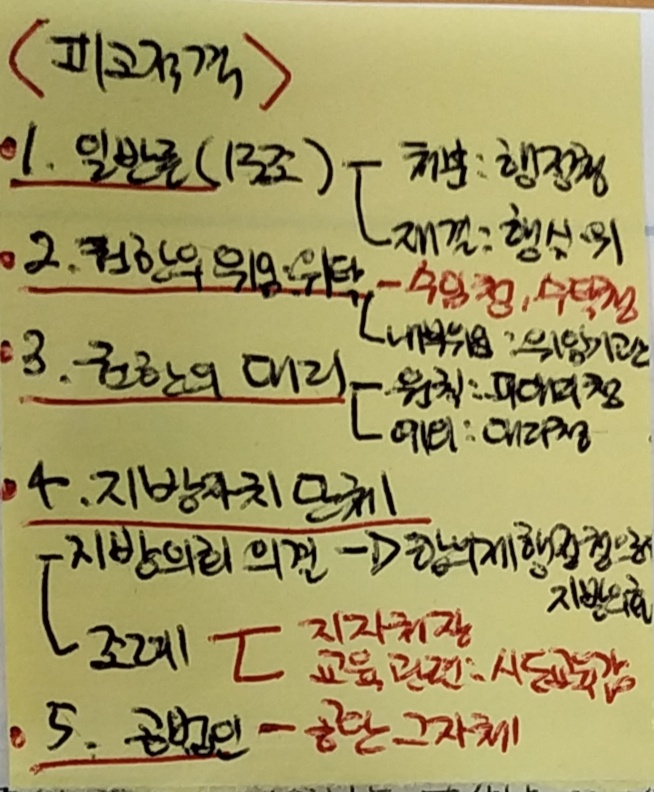 <피고적격>
1. 일반론 (13조) - 처분: 행정청
재결: 행심위
2. 권한의 위임·위탁 - 수임청, 수탁청
내부위임: 위임기관
3. 권한의 대리 - 원칙: 피대리청
예외: 대리청
4. 지방자치단체
지방의회 의결 → 합의제행정청으로
지방의회
조례 지자체장
교육관련: 시·도교육감
5. 공법인 - 공단 그자체